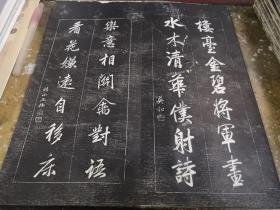 樓臺金碧將軍畫
水木清華僕射詩
英和
樂意相關禽對語
看花嫌遠自移床